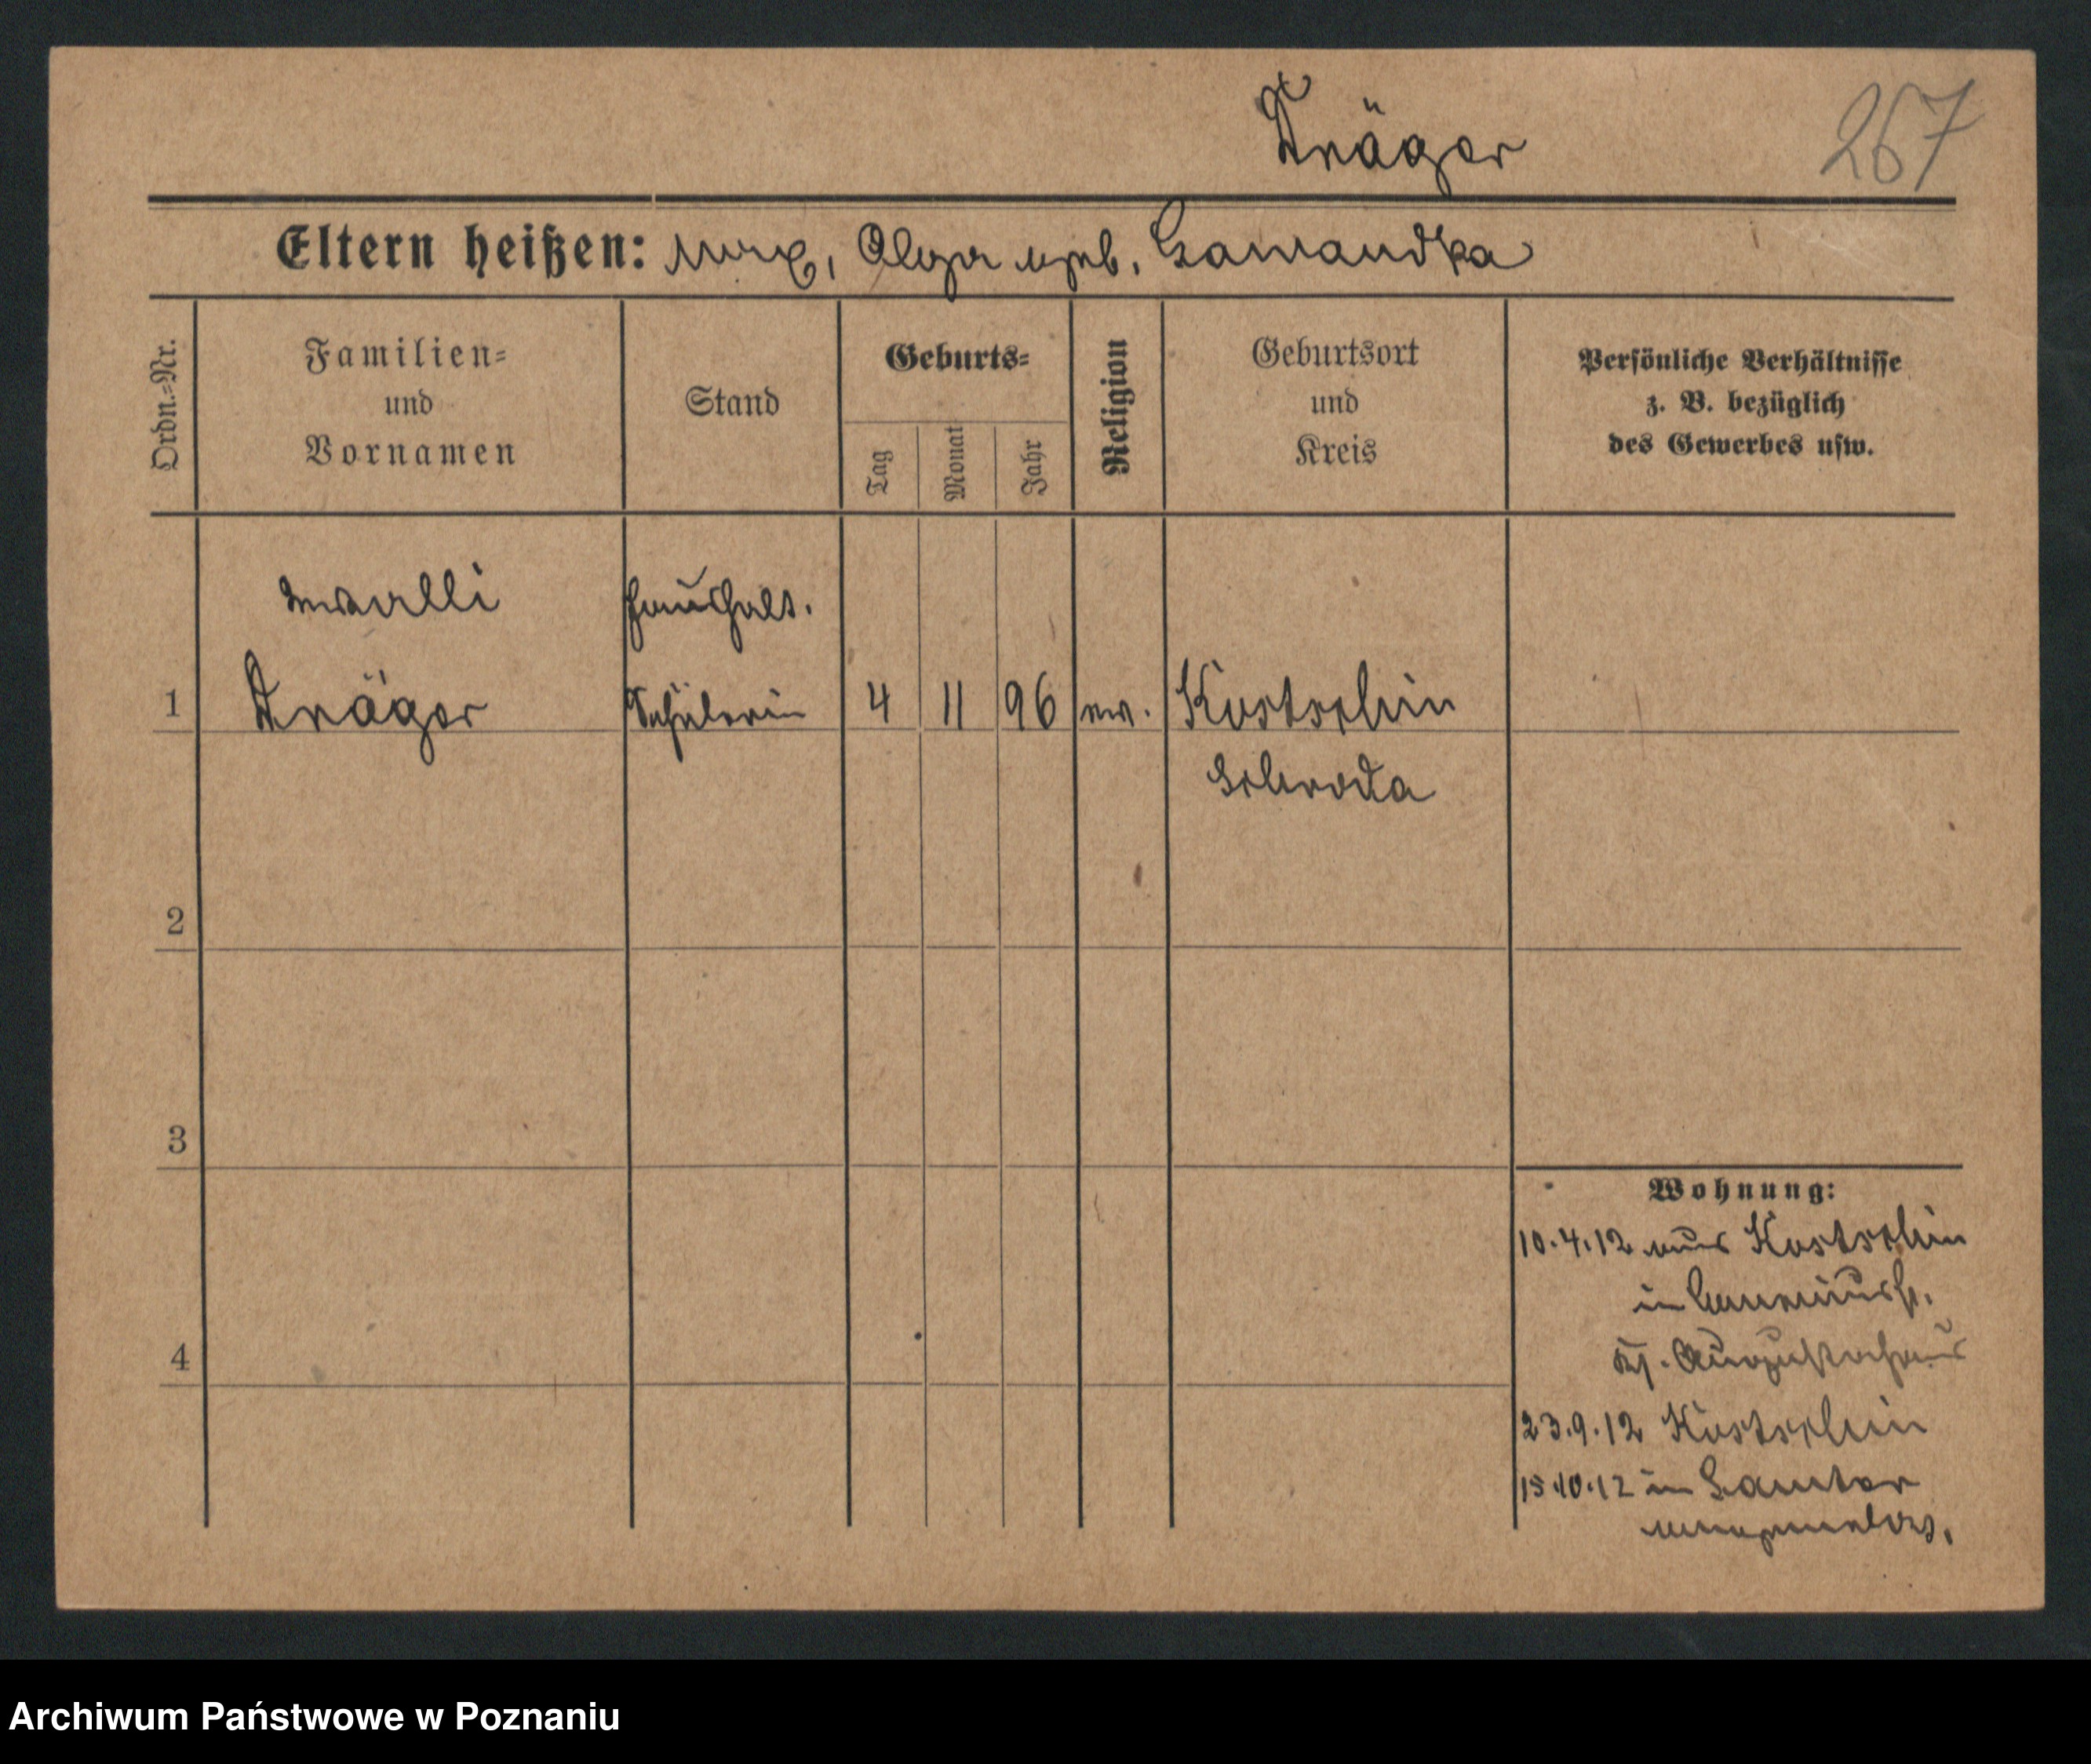 Dräger
267
Eltern heißen: Max, Olga geb. Lawandka
Ordn.-Nr.
Familien-
und
Vornamen
Stand
Geburts-
Tag
Monat
Jahr
Religion
Geburtsort
und
Kreis
Persönliche Verhältnisse
z. B. bezüglich
des Gewerbes usw.
Walli
Haushalt.
1 Dräger Schülerin 4 11 96 ev. Kostschin
Schroda
2
3
Wohnung:
10.4.12 aus Kostschin
in
4
23.9.12 Kostschin
15.10.12 in
Archiwum Państwowe w Poznaniu